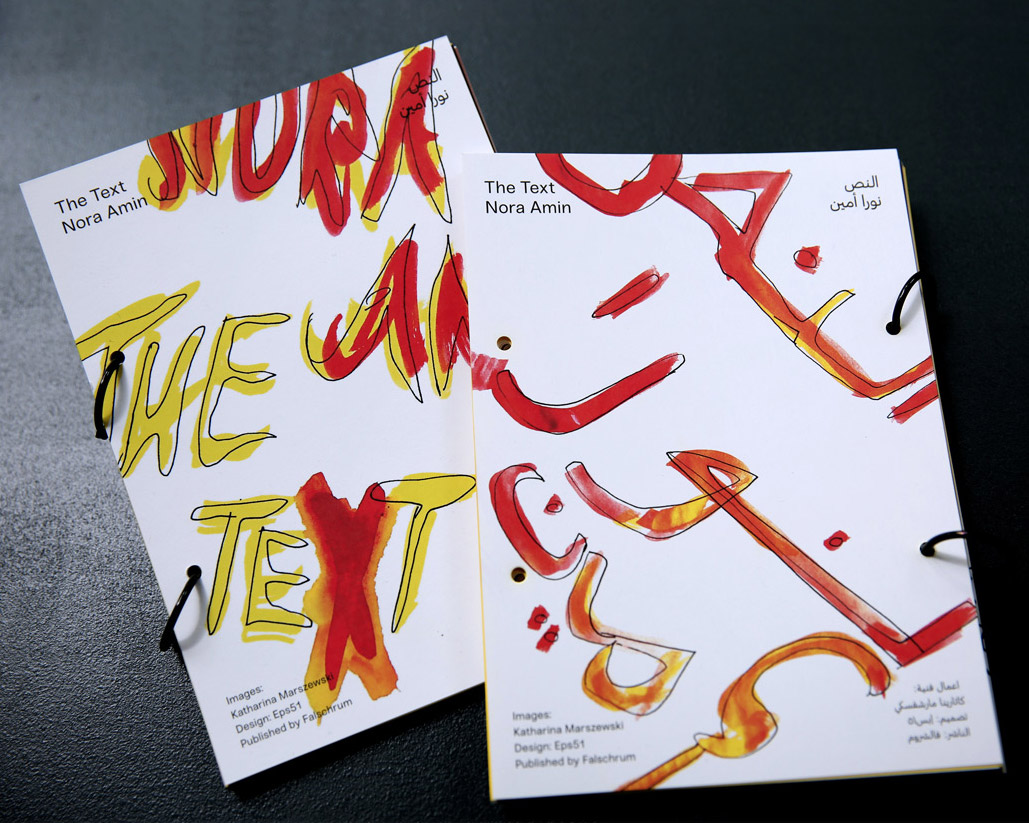 NORA
النص
نورا أمين
The Text
Nora Amin
THE
TEXT
Images:
Katharina Marszewski
Design: Eps51
Published by Falschrum
The Text
Nora Amin
النص
نورا أمين
Images:
Katharina Marszewski
Design: Eps51
Published by Falschrum
اعمال فنية:
كاتارينا مارشفسكي
تصميم: إبس٥١
الناشر: فالشروم